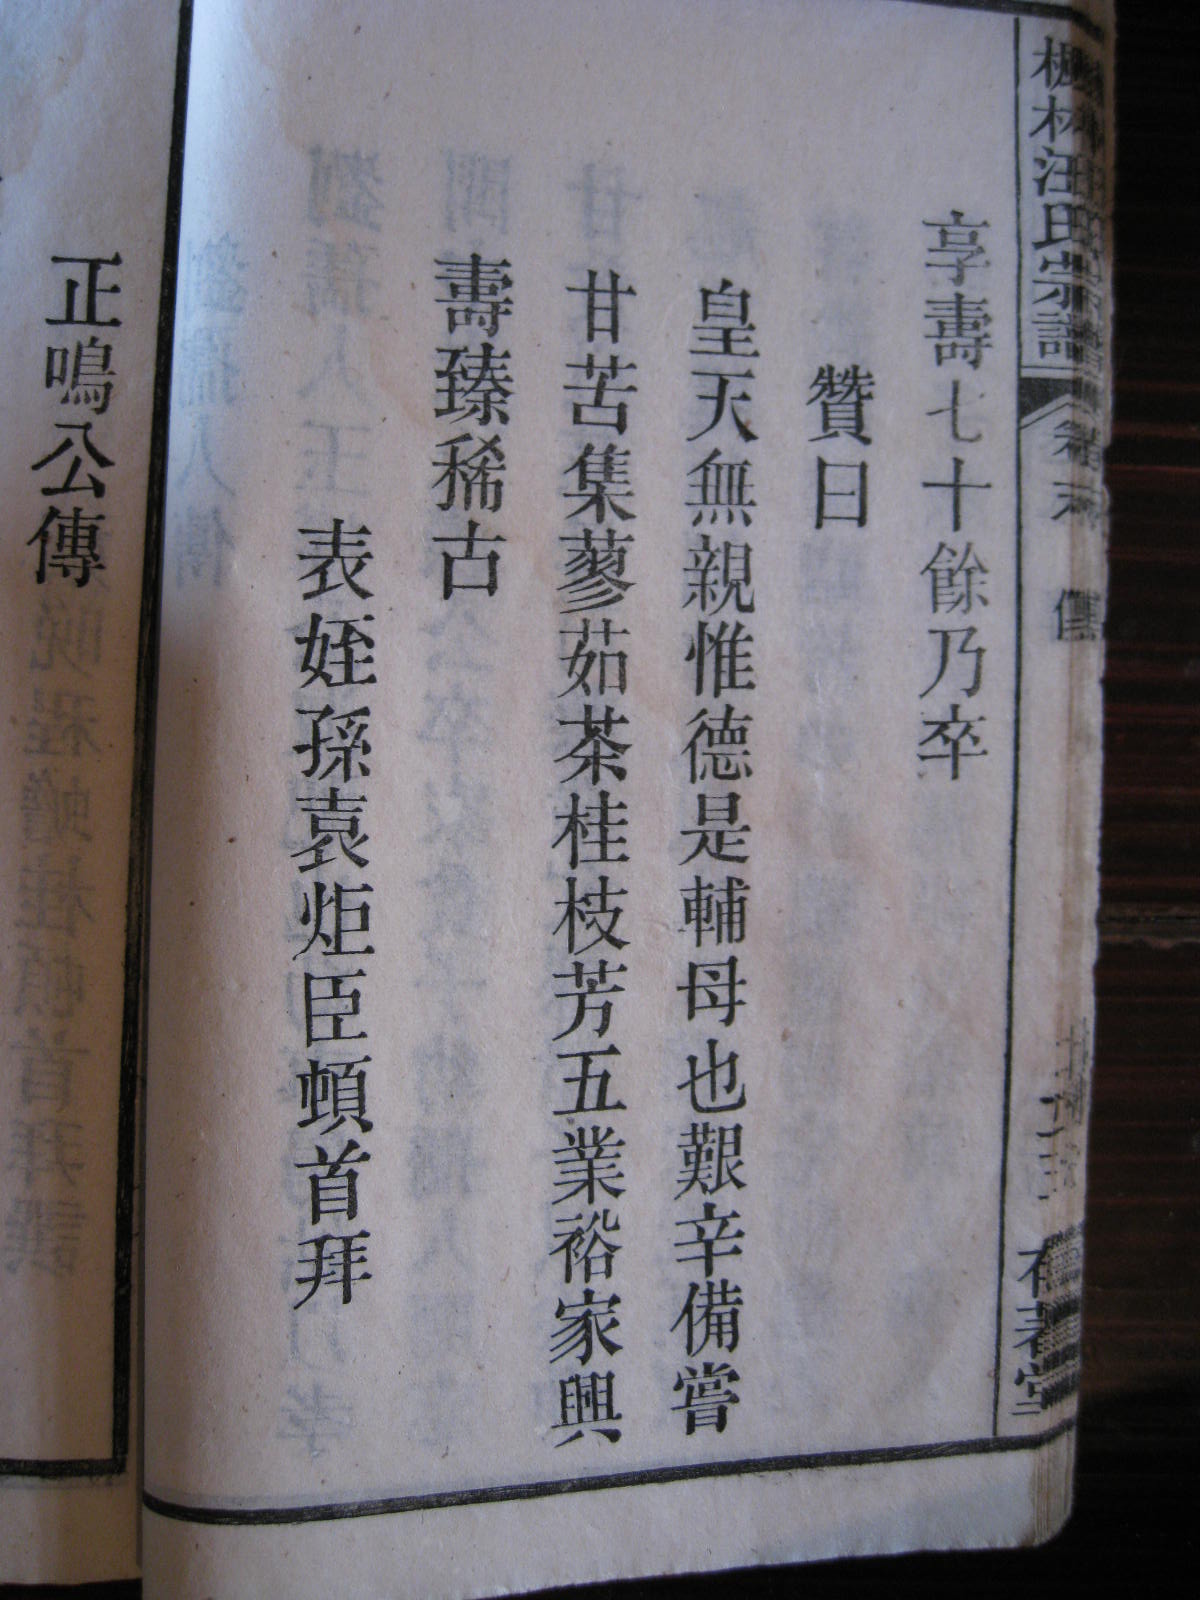 汪氏宗譜
享壽七十餘乃卒
贊曰
皇天無親惟德是輔母也艱辛備嘗
甘苦集蓼茹荼桂枝芳五業裕家興
壽臻稀古
表姪孫袁炬臣頓首拜
正鳴公傳